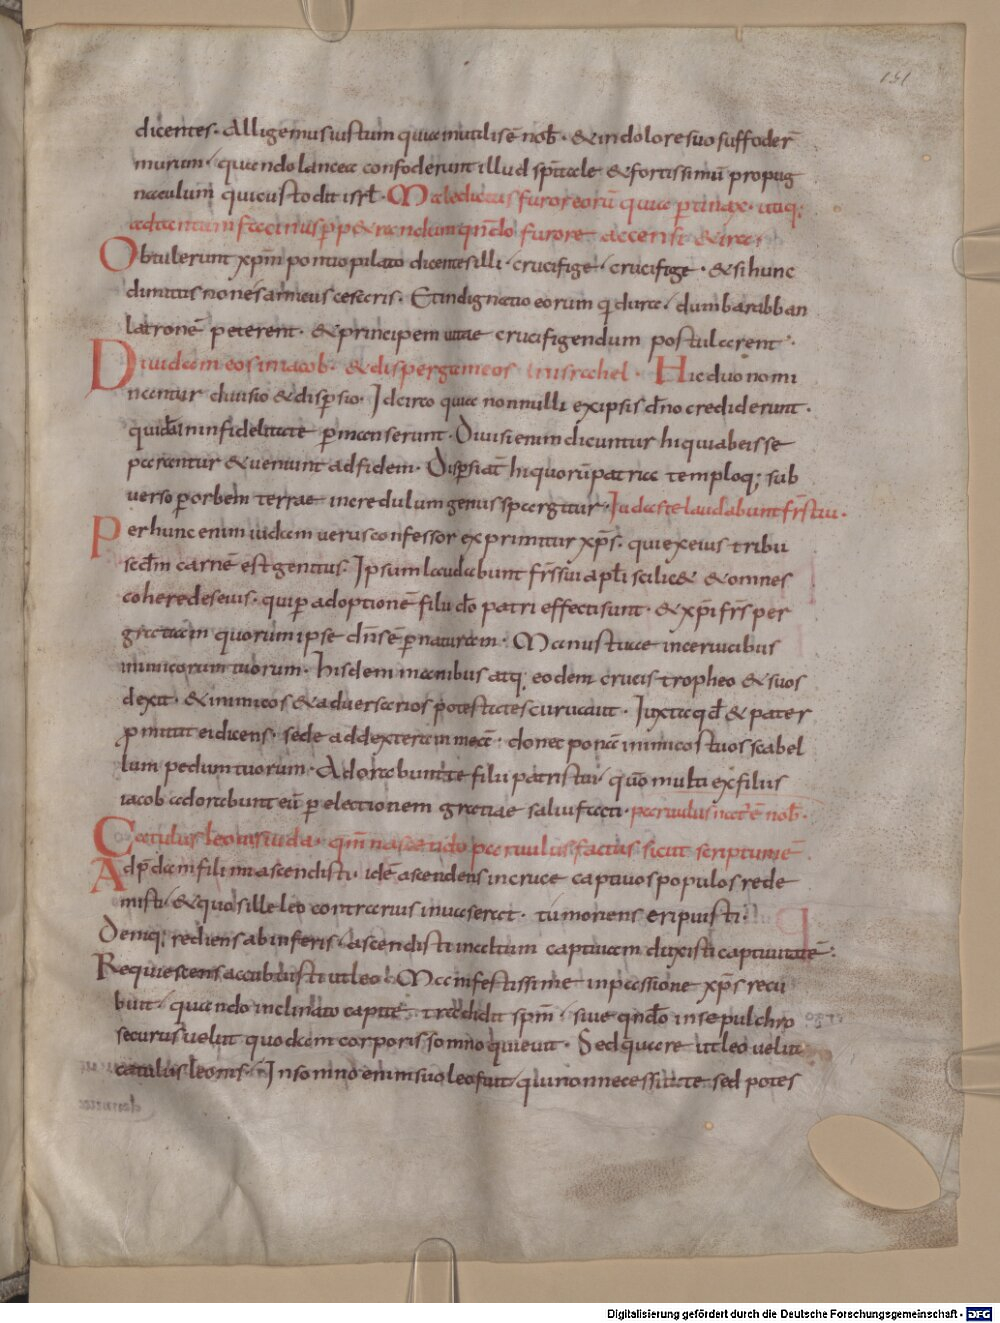 151
dicentes · Alligemus iustum quia inutilis ē nob̄ · & in dolore suo suffoder̄
murum · quando lancea confoderunt illud sp̄itale & fortissimū propug
naculum qui custodit isrl̄ · Maledictus furor eorū quia ꝑtinax · utiq;
ad tantum facinus ꝑpetrandum qn̄do furore accensi & ira ·
Obtulerunt xp̄m pontio pilato dicentes illi · crucifige · crucifige · & si hunc
dimittis non es amicus cesaris · Et indignatio eorum q; dura · dum barabban
latronē peterent · & principem uitae crucifigendum postularent ·
Diuidam eos in iacob · & dispergam eos in israhel · Hic duo nomi
nantur diuisio & disꝑsio · Idcirco quia nonnulli ex ipsis dn̄o crediderunt ·
quidā in infidelitate ꝑmanserunt · Diuisi enim dicuntur hi qui ab eis se
parantur & ueniunt ad fidem · Disꝑsi aūt hi quorū patria temploq; sub
uerso ꝑ orbem terrae incredulum genus spargitur · Iuda te laudabunt fr̄s tui ·
Per hunc enim iudam uerus confessor exprimitur xp̄s · qui ex eius tribu
scd̄m carnē est genitus · Ipsum laudabunt fr̄s sui apl̄i scilic& & omnes
coheredes eius · qui ꝑ adoptionē filii dō patri effecti sunt · & xp̄i fr̄s per
gratiam quorum ipse dn̄s ē ꝑ naturam · Manus tuae in ceruicibus
inimicorum tuorum · hisdem manibus atq; eodem crucis tropheo & suos
dexit · & inimicos & aduersarios potestates curuauit · Iuxta qd̄ & pater
ꝓmittit ei dicens · sede ad dexteram meā · donec ponā inimicos tuos scabel
lum pedum tuorum · Adorabunt te filii patris tui · quō multi ex filiis
iacob adorabunt eū ꝑ electionem gratiae salui facti · paruulus nat' ē nob̄ ·
Catulus leonis iuda · qm̄ nascendo paruulus factus sicut scriptum ē ·
Ad p̄dam fili mi ascendisti · idē ascendens in cruce captiuos populos rede
misti · & quos ille leo contrarius inuaserat · tu moriens eripuisti ·
Demq; rediens ab inferis · ascendisti in altum captiuam duxisti captiuitatē ·
Requiescens accubuisti ut leo · Manifestissime in passione xp̄s recu
buit · quando inclinato capite tradidit sp̄m · siue qn̄do in sepulchro
securus uelut quodam corporis somno quieuit · Sed quare ut leo uelut
catulus leonis · In somno enim suo leo fuit · qui non necessitate sed potes
Digitalisierung gefördert durch die Deutsche Forschungsgemeinschaft - DFG